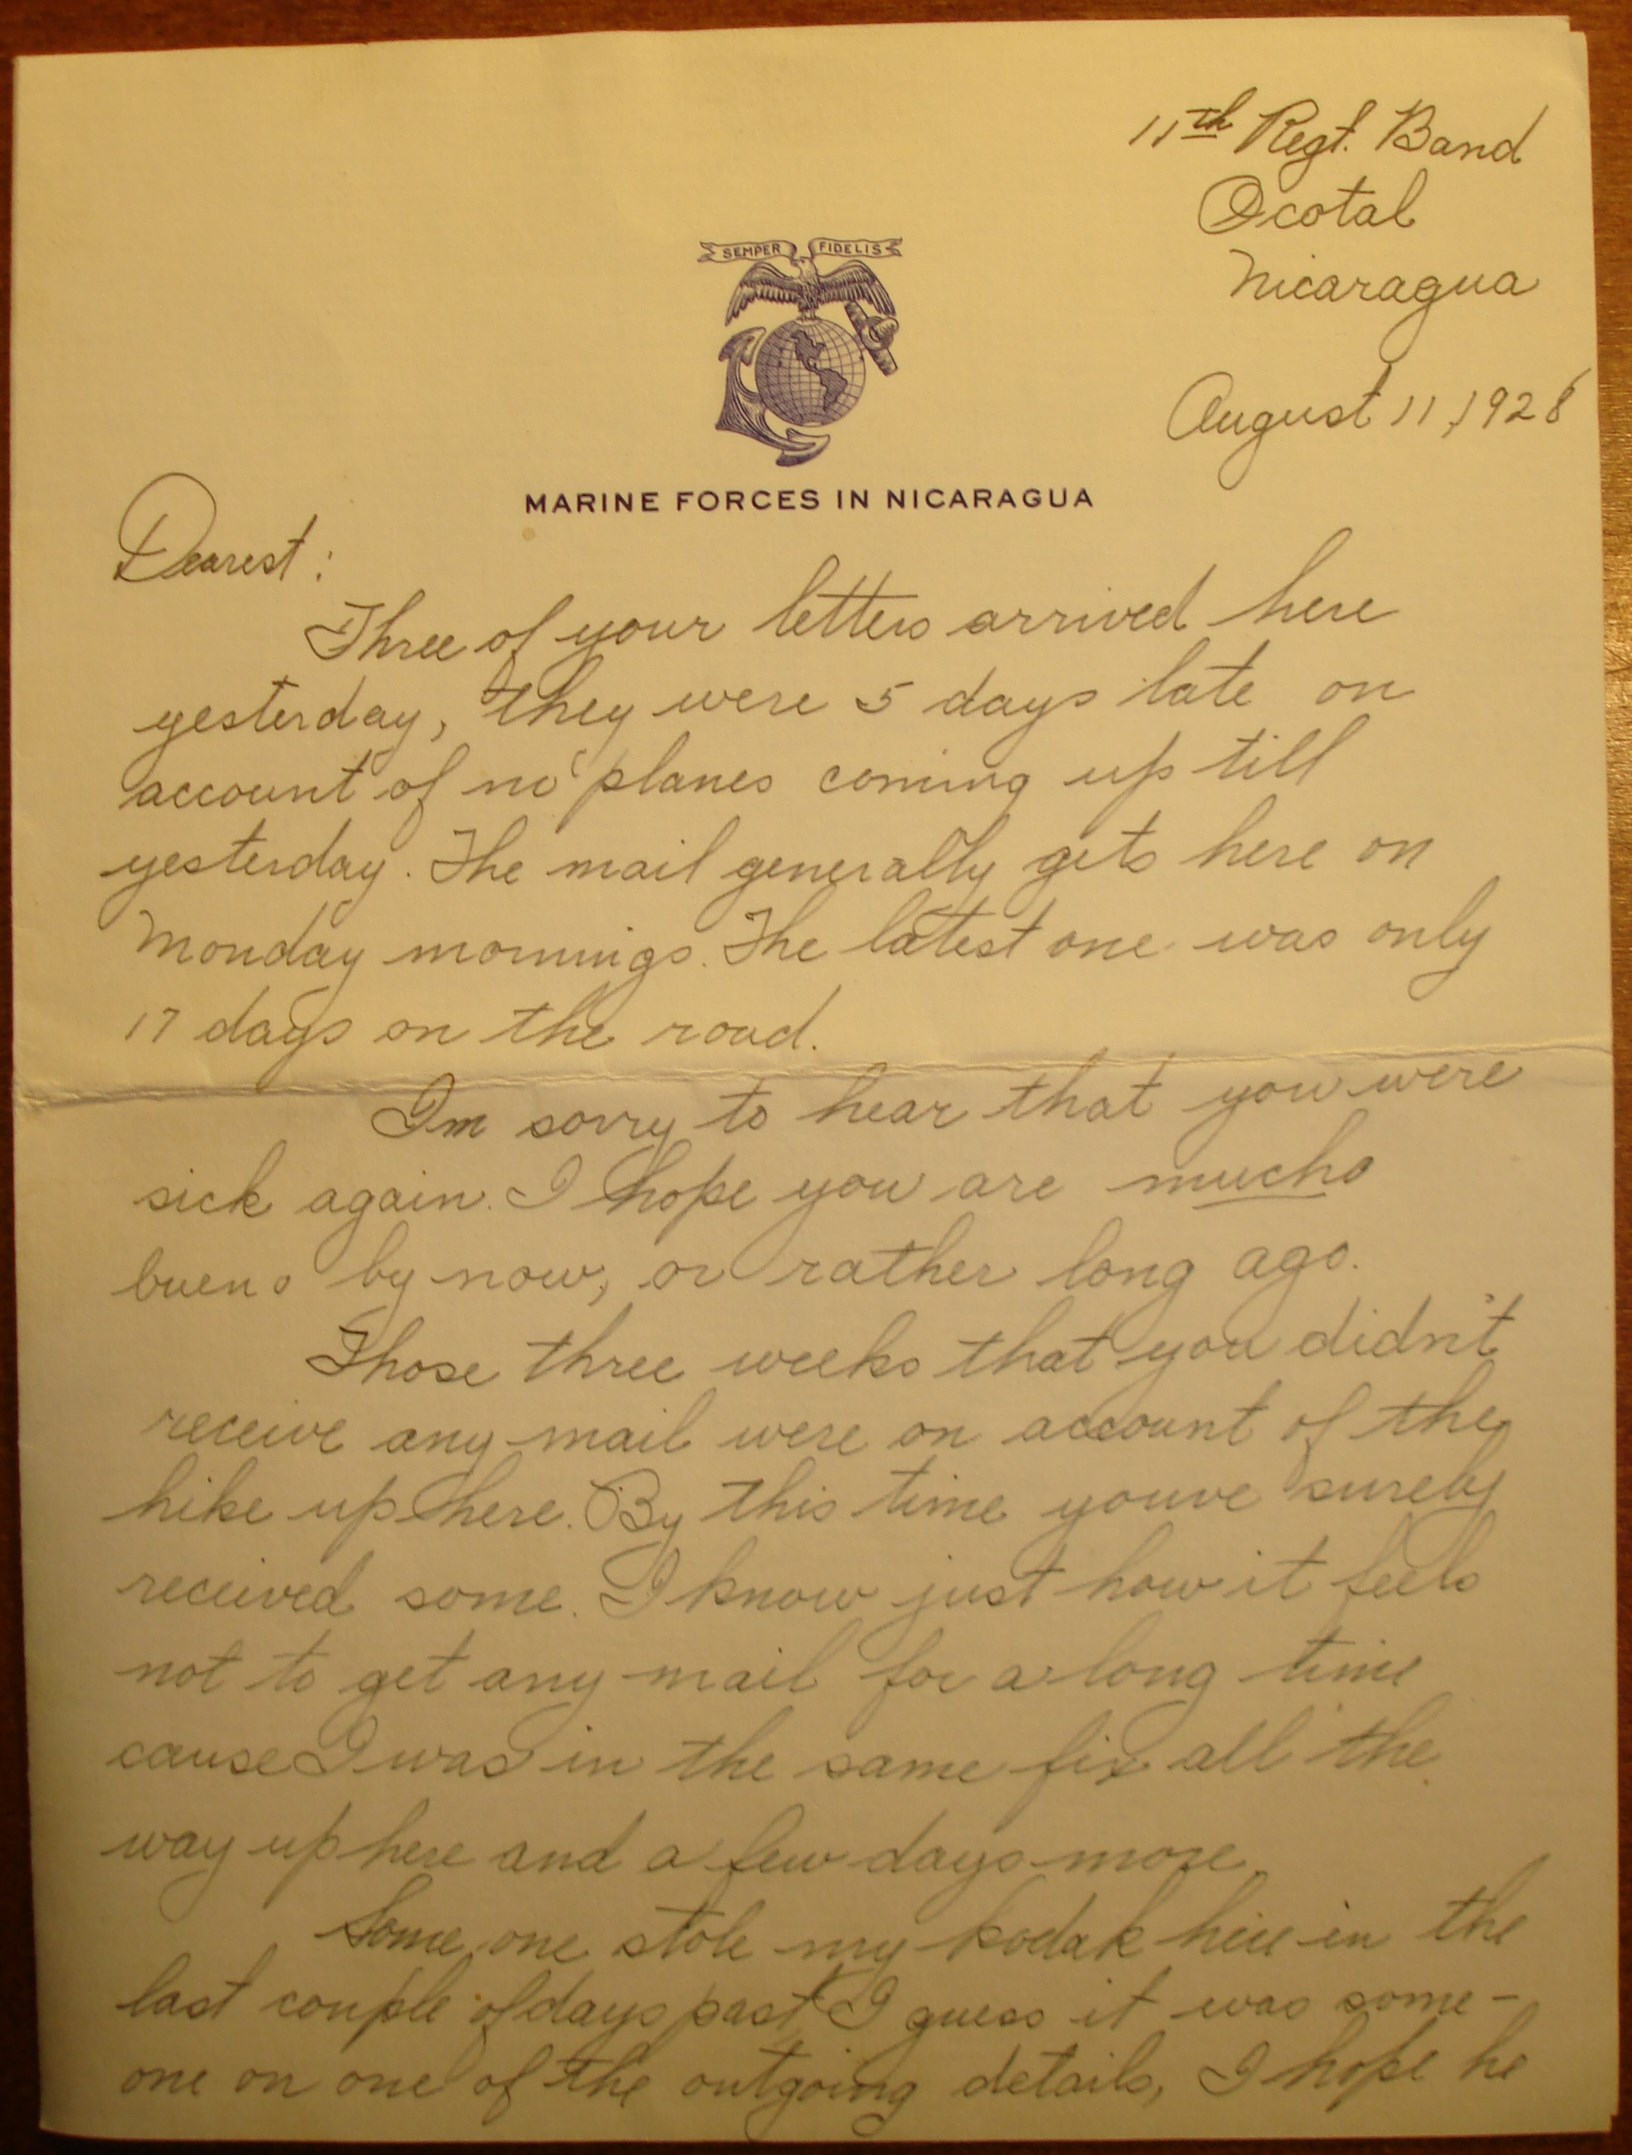 11th Regt. Band
Ocotal
Nicaragua
August 11, 1928
SEMPER FIDELIS
MARINE FORCES IN NICARAGUA
Dearest:
Three of your letters arrived here
yesterday, they were 5 days late on
account of no planes coming up till
yesterday. The mail generally gets here on
Monday mornings. The latest one was only
17 days on the road.
Im sorry to hear that you were
sick again. I hope you are mucho
bueno by now, or rather long ago.
Those three weeks that you didn't
receive any mail were on account of the
hike up here. By this time youve surely
received some. I know just how it feels
not to get any mail for a long time
cause I was in the same fix all the
way up here and a few days more.
Some one stole my kodak here in the
last couple of days past, I guess it was some-
one on one of the outgoing details, I hope he